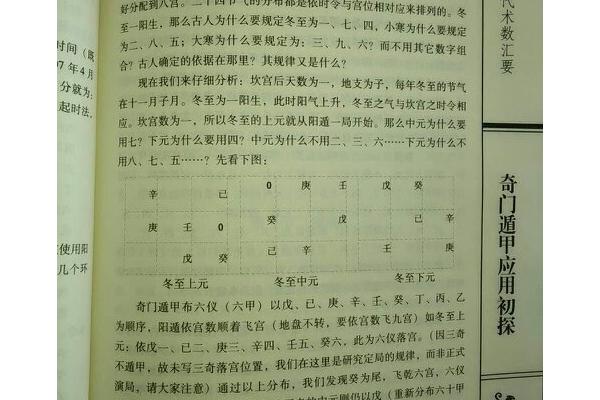 好分配到八宫。二十四节气的分布都是依时令与宫位相对应来排列的。冬
至一阳生，那么古人为什么要规定冬至为一、七、四，小寒为什么要规定
为二、八、五；大寒为什么要规定为：三、九、六？而不用其它数字组
合？古人确定的依据在那里？其规律又是什么？
现在我们来仔细分析：坎宫后天数为一，地支为子，每年冬至的节气
在十一月子月。冬至为一阳生，此时阳气上升，冬至之气与坎宫之时令相
应。坎宫数为一，所以冬至的上元就从阳遁一局开始。那么中元为什么要
用七？下元为什么要用四？中元为什么不用二、三、六……下元为什么不
用八、七、五……？先看下图：
辛 己 0 庚 壬 戊 癸
庚 壬 0 癸 戊 己 辛
戊 癸 己 辛 壬 庚
冬至上元 冬至中元 冬至下元
奇门遁甲布六仪（六甲）以戊、己、庚、辛、壬、癸、丁、丙、乙
为顺序，阳遁依宫数顺着飞宫（地盘不转，要依宫数飞九宫）如冬至上
元：依戊一、己二、庚三、辛四、壬五、癸六，此为六仪落宫。（因三奇
不遁甲，故未写三奇落宫位置，我们在这里是研究定局的规律，而非正式
演局，请大家注意）通过以上分布，我们发现癸为尾，飞乾六宫，六仪
中元则仍以戊（重新分布六十甲
时间（既
07 年 4 月
分就为：
起时法，
使用阳
几个环
代术数汇要
奇门遁甲应用初探